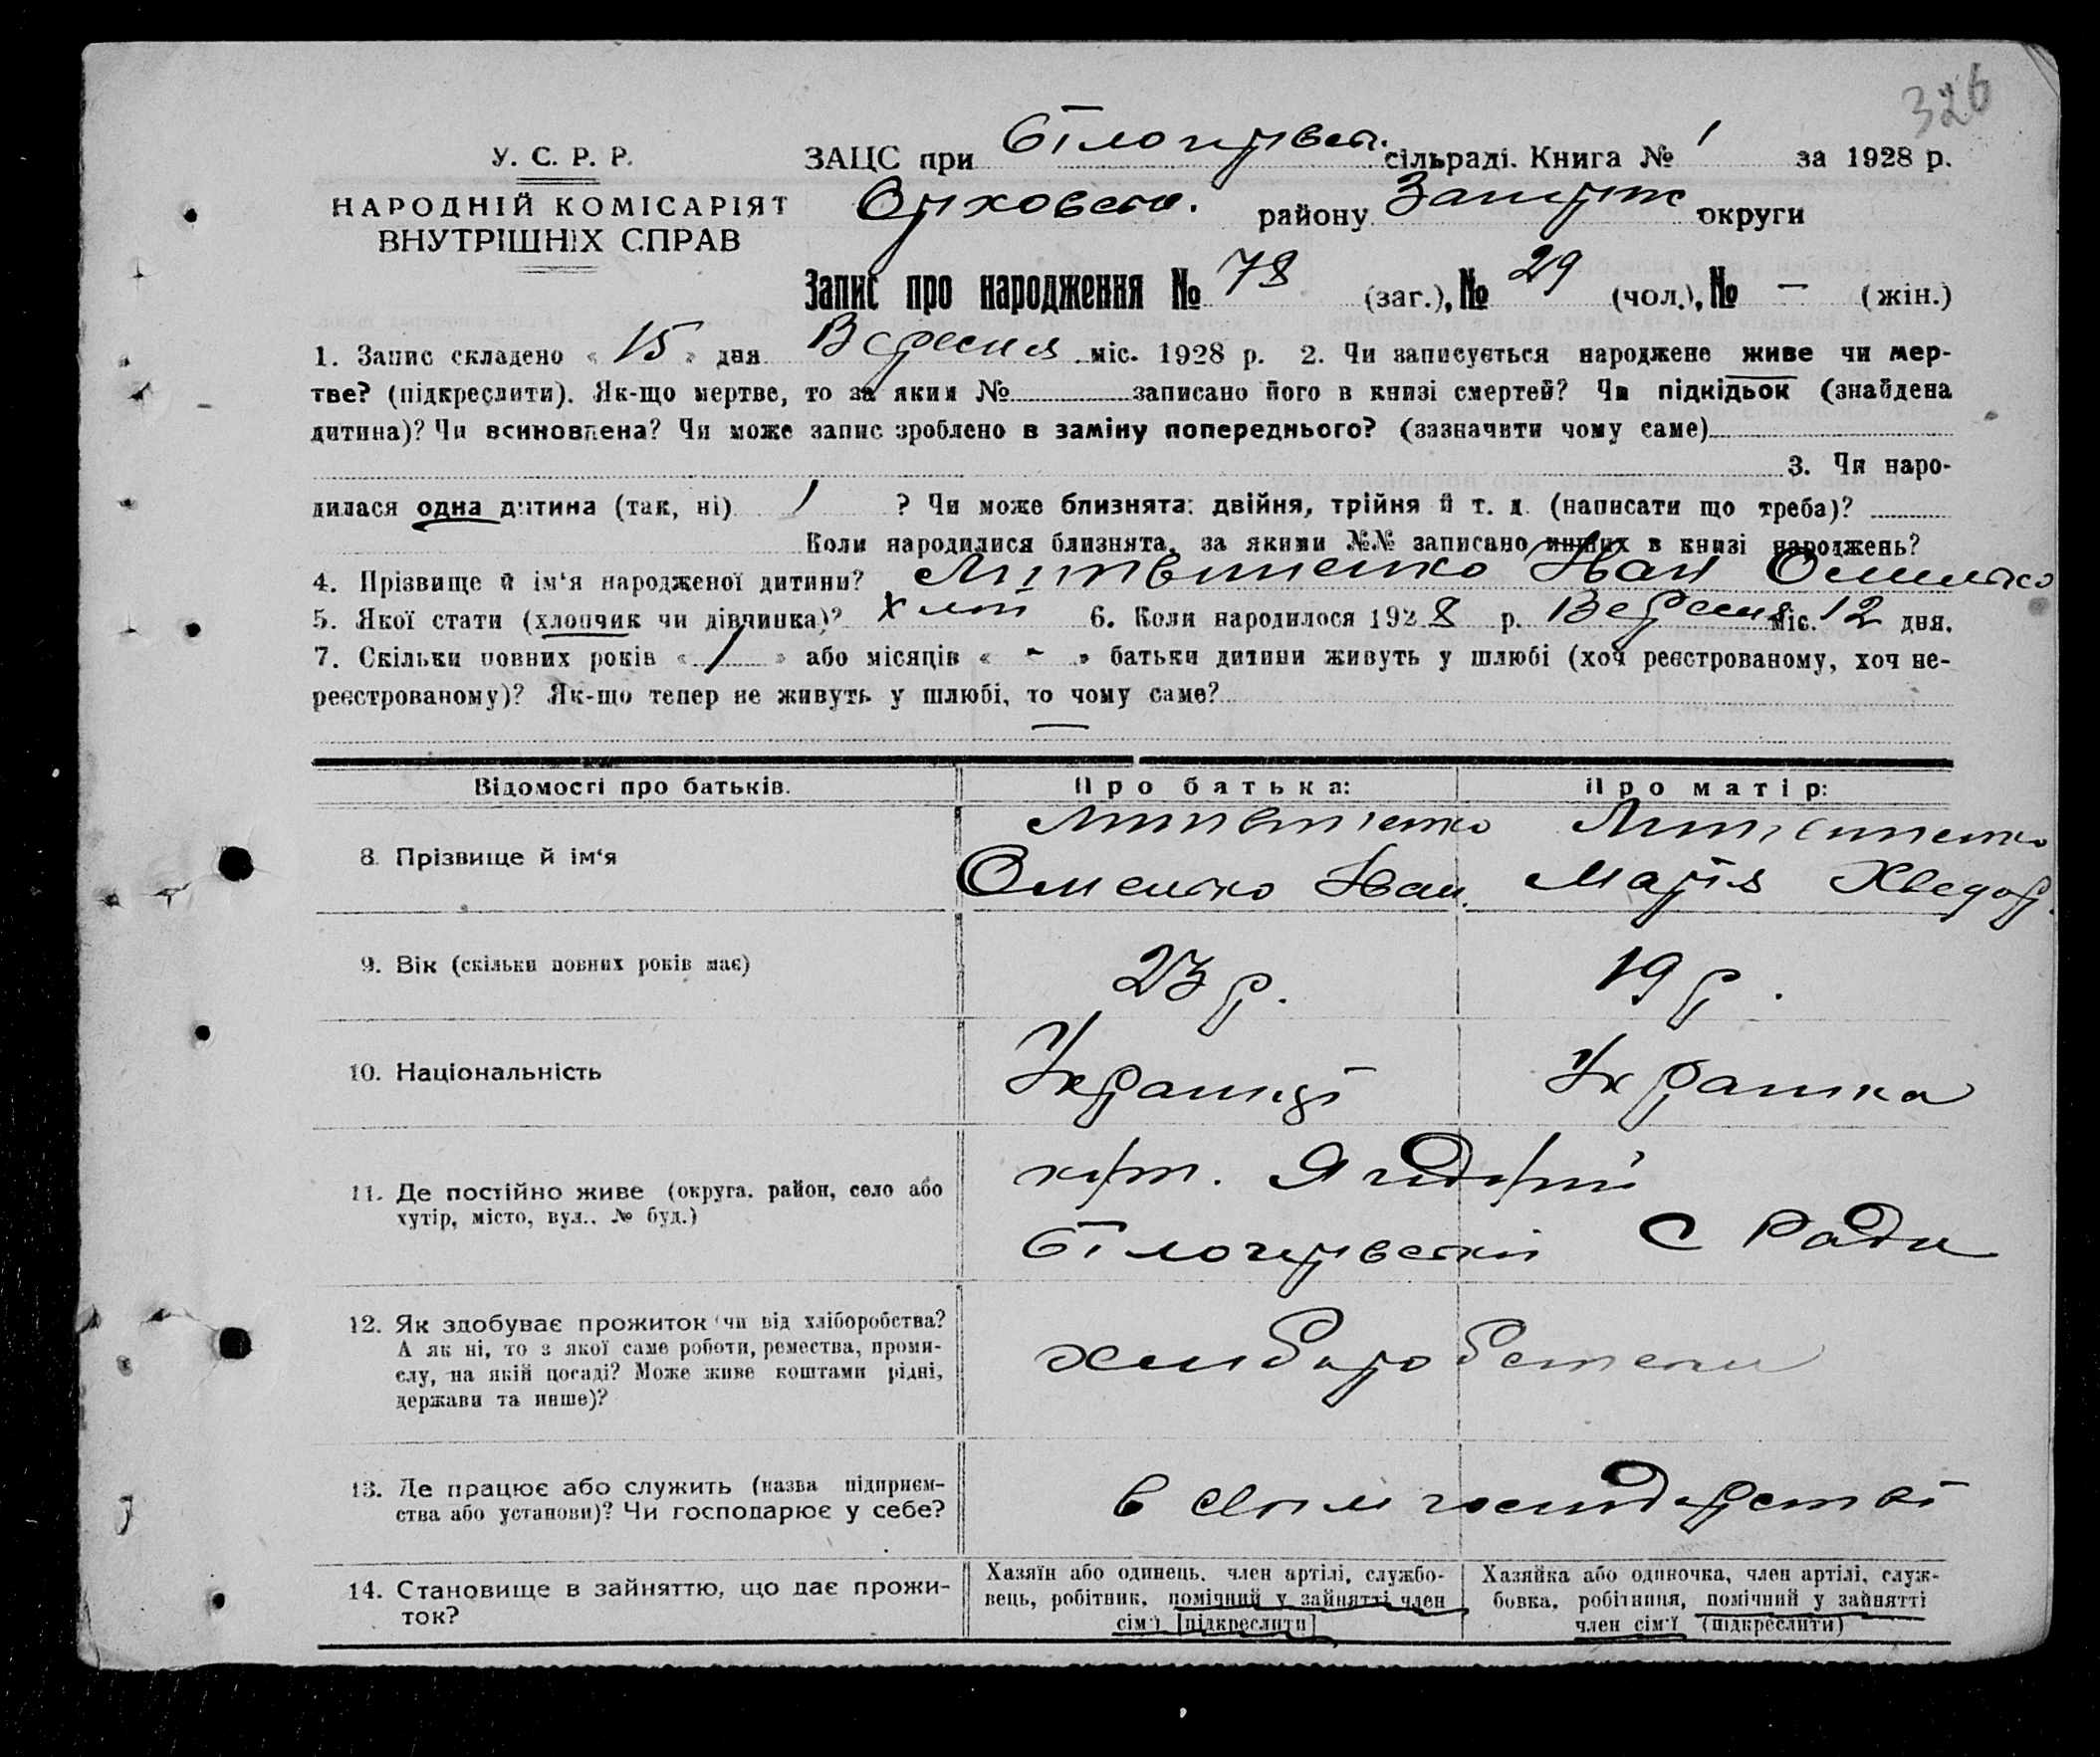 326
У. С. Р. Р.
НАРОДНІЙ КОМІСАРІЯТ
ВНУТРІШНІХ СПРАВ
ЗАЦС при Білогірвск. сільраді. Книга № 1 за 1928 р.
Оріховськ. району Запоріж округи
Запис про народження № 78 (заг.), № 29 (чол.), № — (жін.)
1. Запис складено « 15 » дня Вересня міс. 1928 р. 2. Чи записується народжене живе чи мер-
тве? (підкреслити). Як-що мертве, то за яким № записано його в книзі смертей? Чи підкідьок (знайдена
дитина)? Чи всиновлена? Чи може запис зроблено в заміну попереднього? (зазначити чому саме)
3. Чи наро-
дилася одна дитина (так, ні) 1 ? Чи може близнята: двійня, трійня й т. д. (написати що треба)?
Коли народилися близнята, за якими №№ записано инших в книзі народжень?
4. Прізвище й ім‘я народженої дитини? Литвиненко Іван Омелько
5. Якої стати (хлопчик чи дівчинка)? хлоп 6. Коли народилося 1928 р. Вересня міс. 12 дня.
7. Скільки повних років « 1 » або місяців « - » батьки дитини живуть у шлюбі (хоч реєстрованому, хоч не-
реєстрованому)? Як-що тепер не живуть у шлюбі, то чому саме?
—
Відомості про батьків. Про батька: Про матір:
8. Прізвище й ім‘я Литвиненко Омелько Іван. Литвиненко Марія Хведор.
9. Вік (скільки повних років має) 23 р. 19 р.
10. Національність Українці Українка
11. Де постійно живе (округа, район, село або
хутір, місто, вул., № буд.)
хут.
Білогірвскій С Ради
12. Як здобуває прожиток чи від хліборобства?
А як ні, то з якої саме роботи, ремества, проми-
слу, на якій посаді? Може живе коштами рідні,
держави та инше)?
13. Де працює або служить (назва підприєм-
ства або установи)? Чи господарює у себе?
в своім господарстві
14. Становище в зайняттю, що дає прожи-
ток?
Хазяїн або одинець, член артілі, службо-
вець, робітник, помічний у зайнятті член
сім‘ї [підкреслити]
Хазяйка або одиночка, член артілі, служ-
бовка, робітниця, помічний у зайнятті
член сім‘ї (підкреслити)